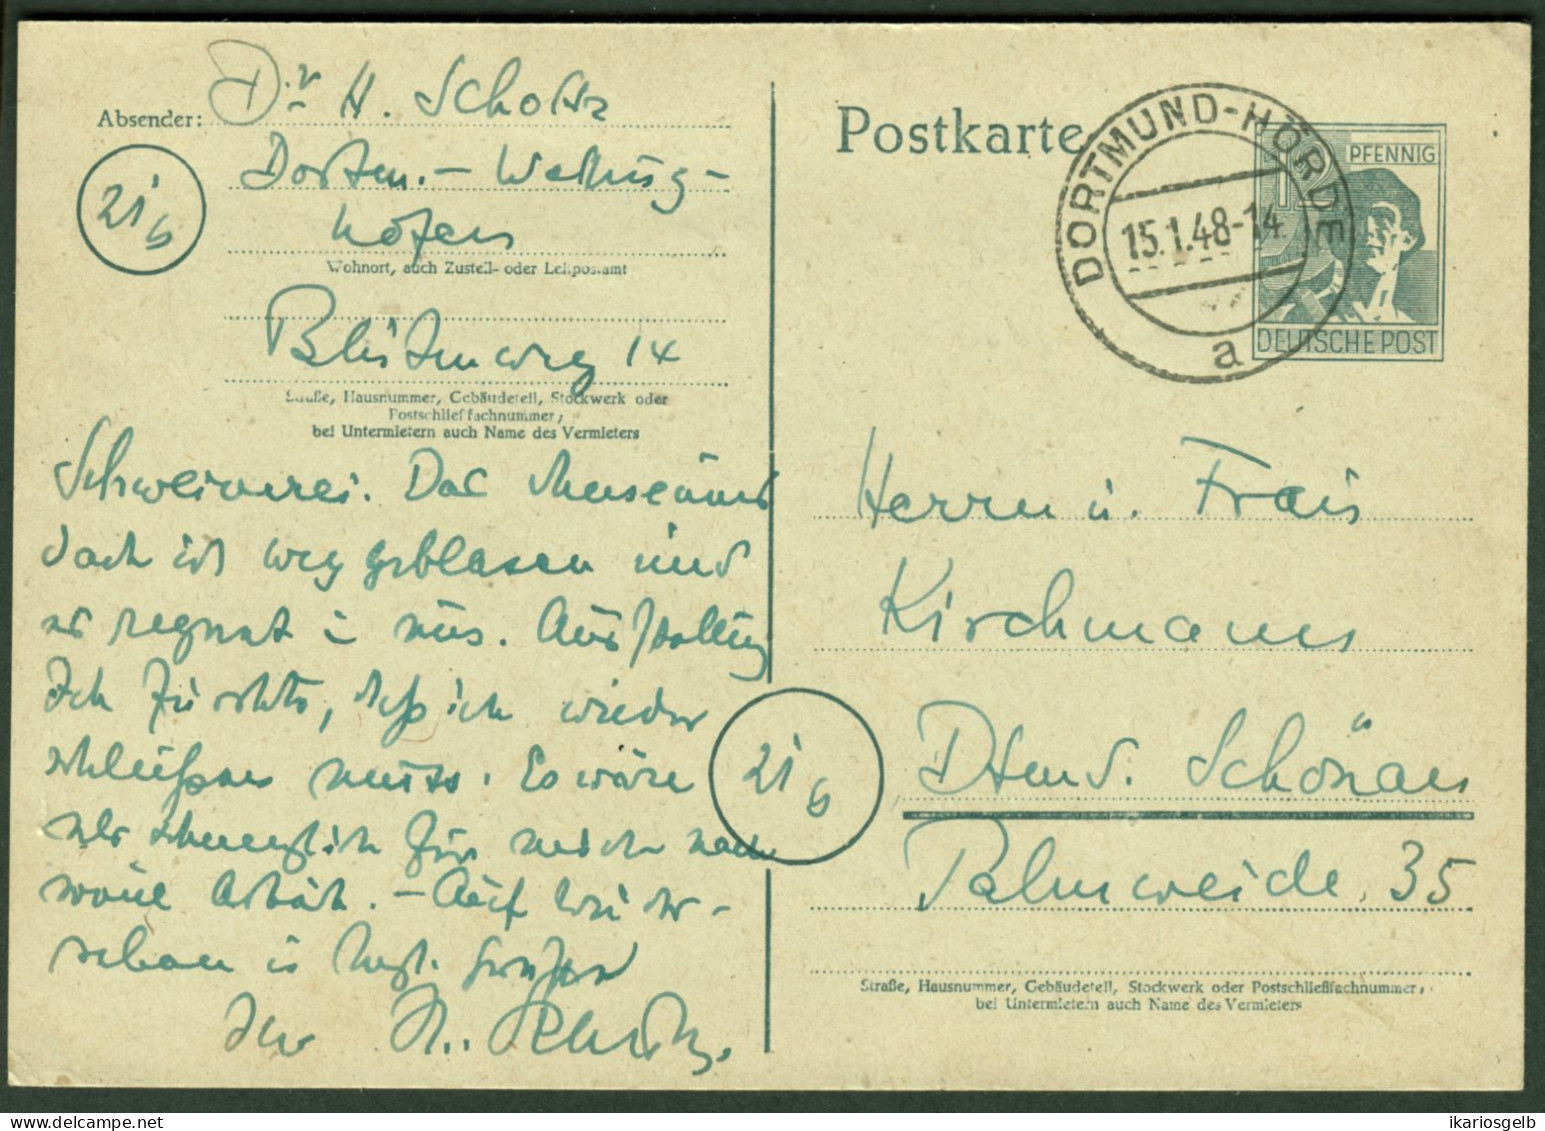 Absender: Dr. H. Scholtz
Dortm. - Welling-
hofen
21b
Wohnort, auch Zustell- oder Leitpostamt
Blütenweg 14
Straße, Hausnummer, Gebäudeteil, Stockwerk oder
Postschließfachnummer;
bei Untermietern auch Name des Vermieters
Schweinerei. Das Museums
dach ist weggeblasen und
es regnet i uns. Ausstellung
Ich fürchte, daß ich wieder
schließen muss. Es wäre
sehr schmerzlich für mich nach
soviel Arbeit. - Auf Wieder-
sehen u herzl. Grüßen
Ihr H. Scholtz.
Postkarte
DORTMUND-HÖRDE
15.1.48-14
a
12 PFENNIG
DEUTSCHE POST
Herrn u. Frau
Kirchmann
21b
Dtmd. Schönau
Palmweide 35
Straße, Hausnummer, Gebäudeteil, Stockwerk oder Postschließfachnummer;
bei Untermietern auch Name des Vermieters
ikariosgelb